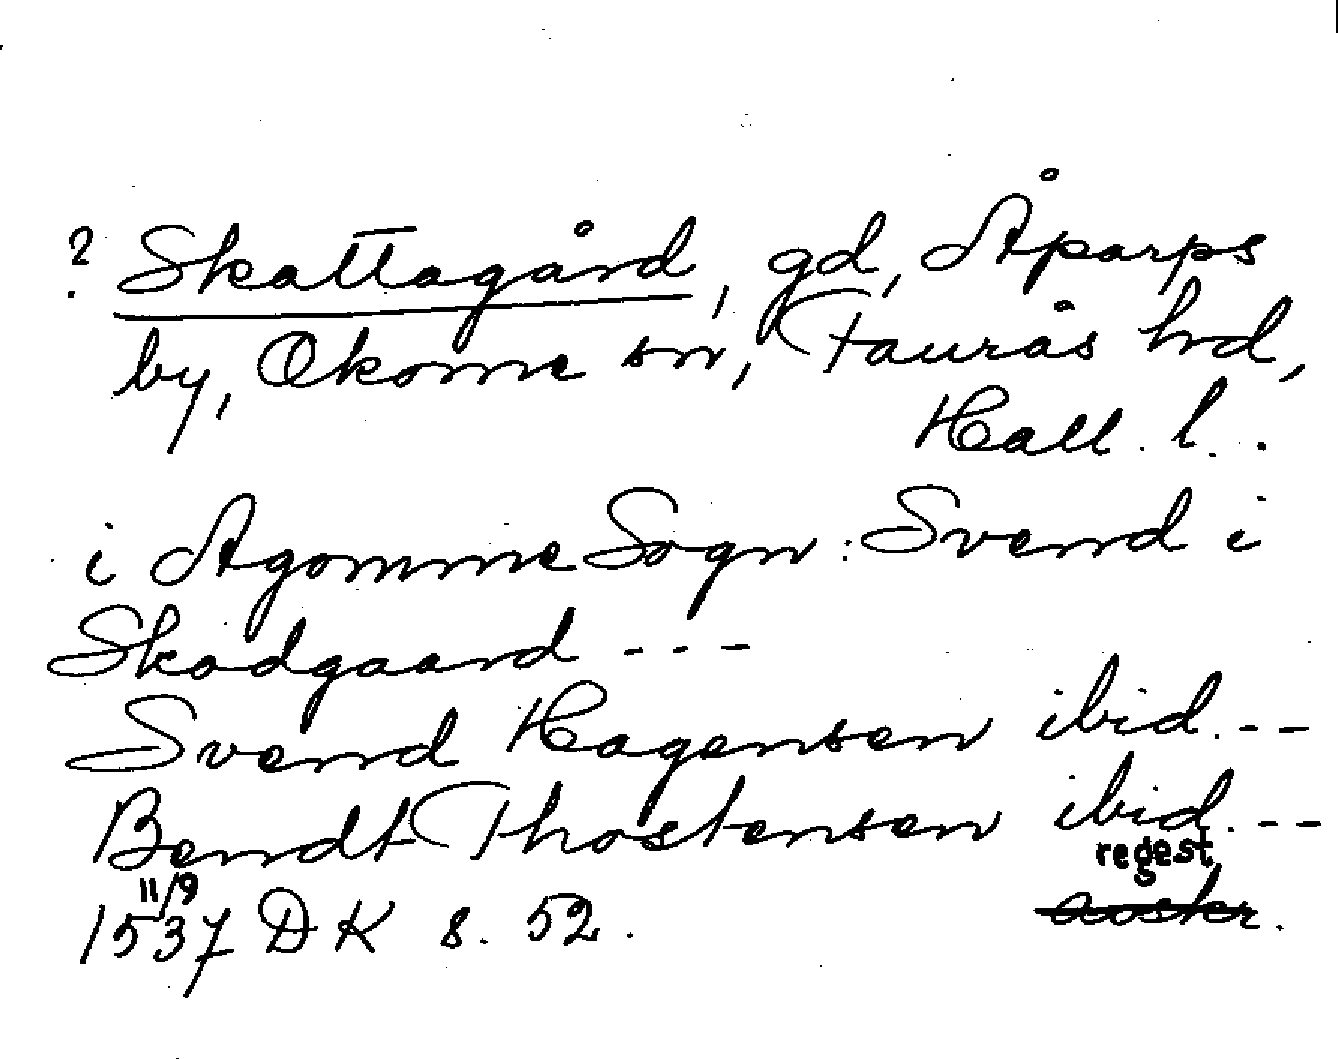 ? Skattagård, gd, Åparps
by, Okome sn, Faurås hd,
Hall. l..
i Agomme Sogn: Svend i
Skadgaard ---
Svend Hagensen ibid.--
Bendt Thostensen ibid.--
regest
11/9
1537 DK s. 52.